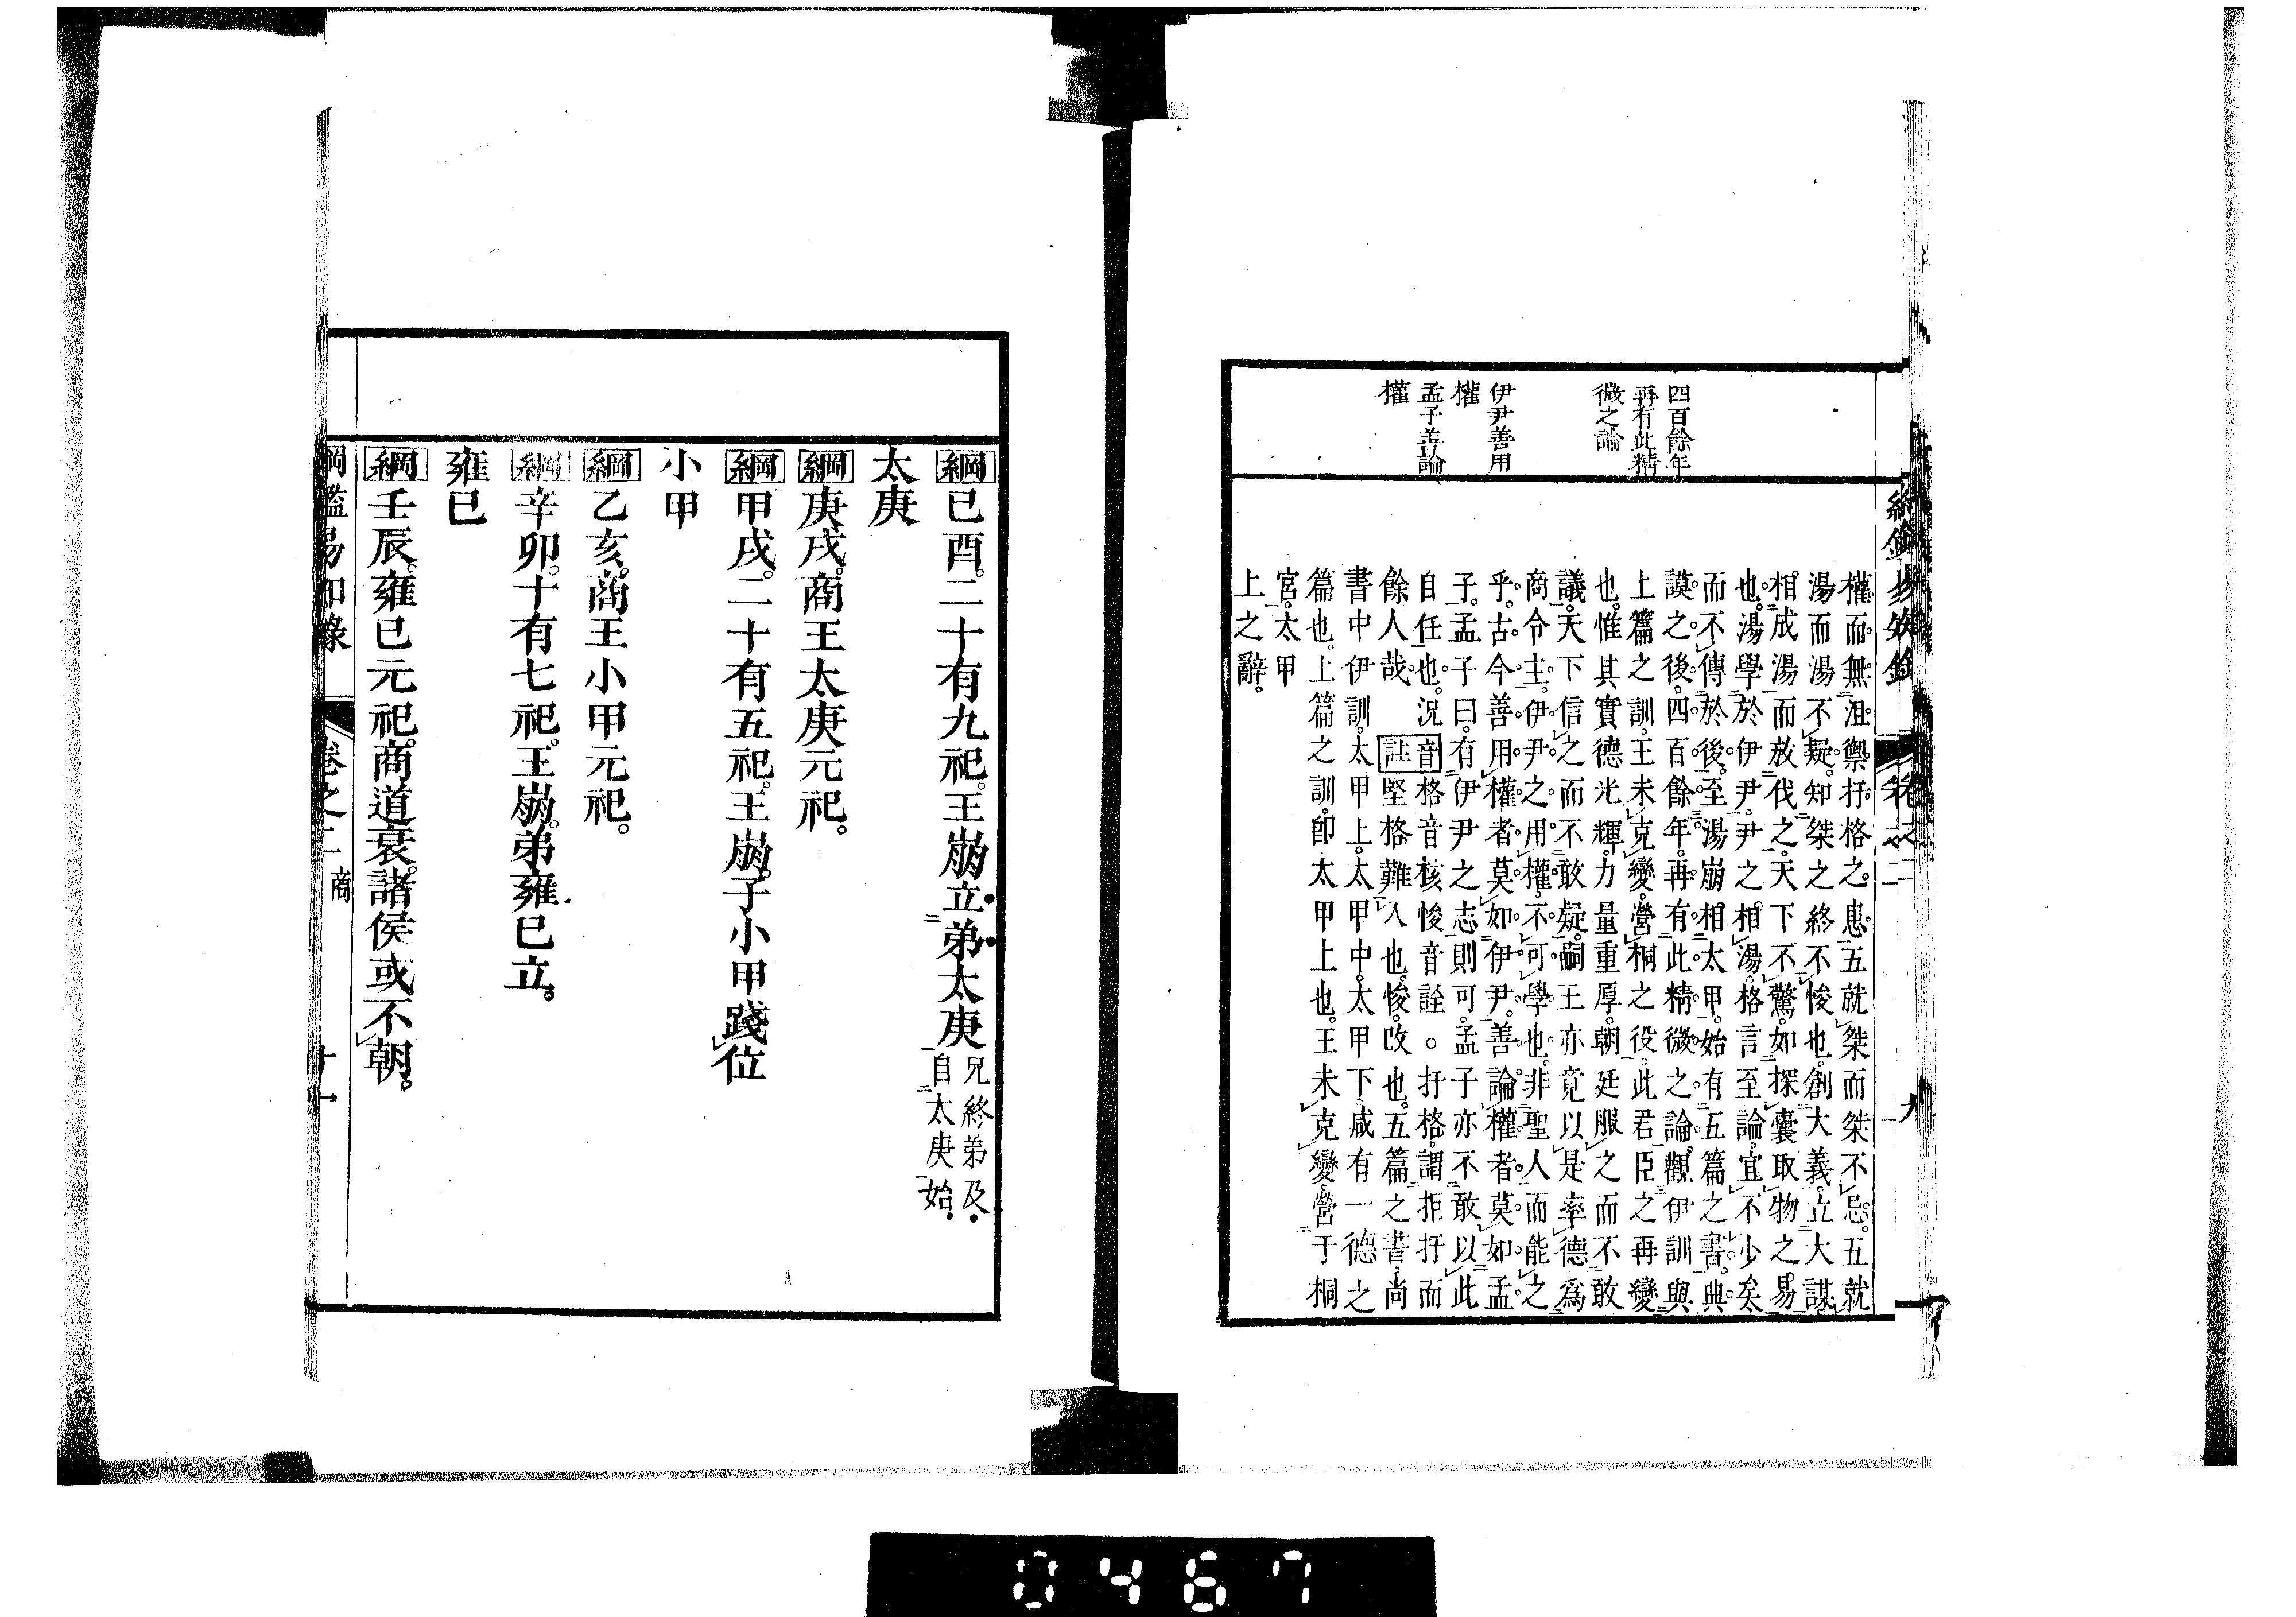 四百餘年
再有此精
微之論
伊尹善用
權
孟子善論
權
權而無沮禦扞格之患五就桀而桀不忌五就
湯而湯不疑知桀之終不悛也創大義立大謀
相成湯而放伐之天下不驚如探囊取物之易
也湯學於伊尹尹之相湯格言至論宜不少矣
而不傳於後至湯崩相太甲始有五篇之書典
謨之後四百餘年再有此精微之論觀伊訓與
上篇之訓王未克變營桐之役此君臣之再變
也惟其實德光輝力量重厚朝廷服之而不敢
議天下信之而不敢疑嗣王亦竟以是率德為
商令主伊尹之用權不可學也非聖人而能之
乎古今善用權者莫如伊尹善論權者莫如孟
子孟子曰有伊尹之志則可孟子亦不敢以此
自任也況
餘人哉
音格音核悛音詮。扞格謂拒扞而
註堅格難入也悛改也五篇之書尚
書中伊訓太甲上太甲中太甲下咸有一德之
篇也上篇之訓即太甲上也王未克變營于桐
宮太甲
上之辭
綱己酉二十有九祀王崩立弟太庚
兄終弟及
自太庚始
太庚
綱庚戌商王太庚元祀
綱甲戌二十有五祀王崩子小甲踐位
小甲
綱乙亥商王小甲元祀
綱辛卯十有七祀王崩弟雍已立
雍已
綱壬辰雍已元祀商道衰諸侯或不朝
綱鑑易知錄
卷之二 商
十一
0467